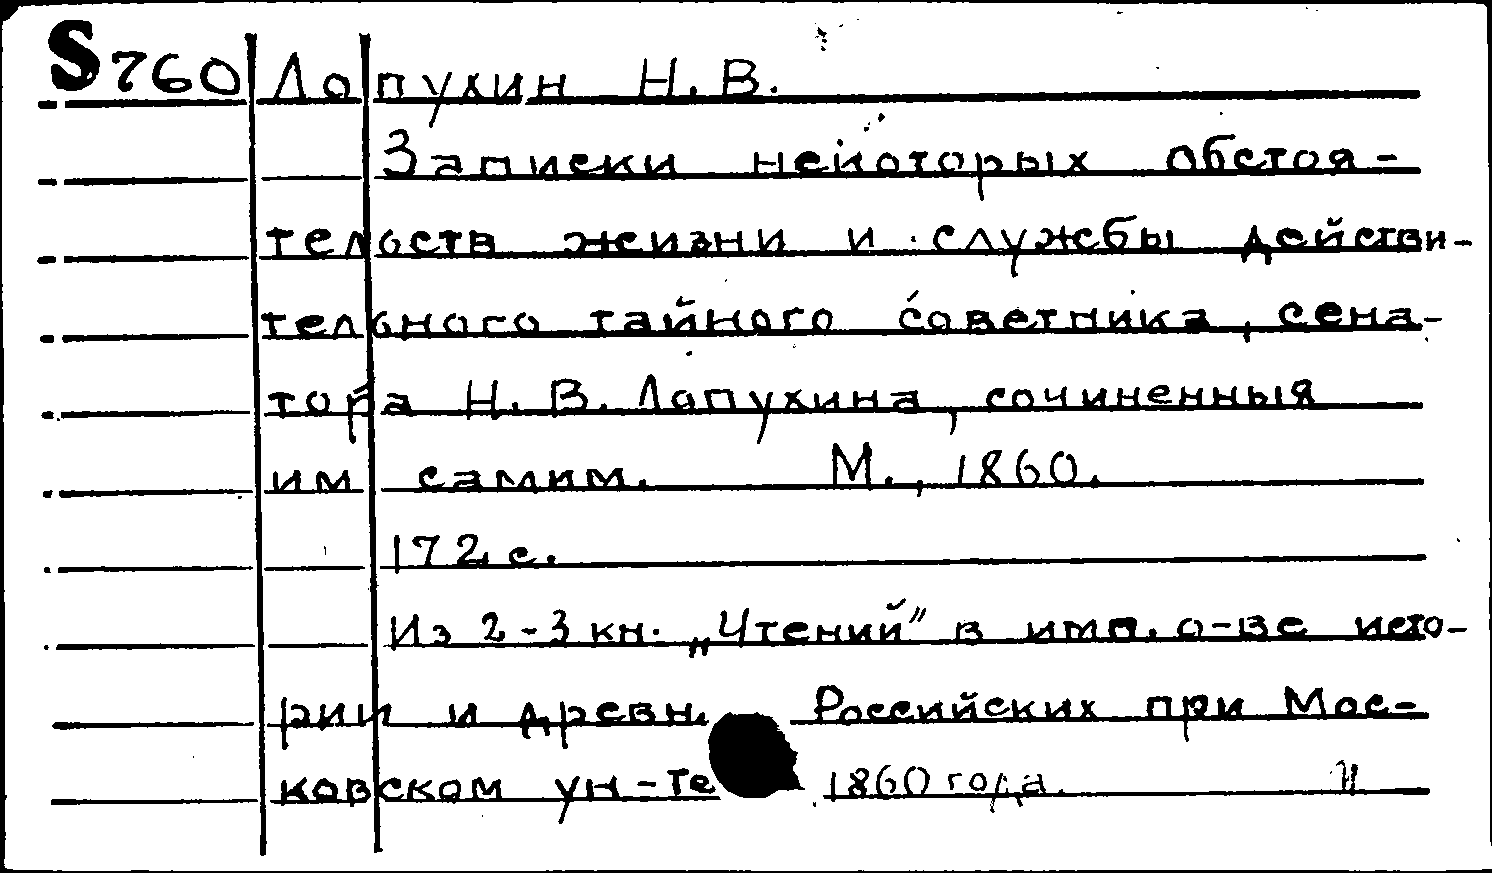 S760 Лопухин Н. В.
Записки некоторых обстоя-
тельств жизни и службы действи-
тельного тайного советника, сена-
тора Н. В. Лопухина, сочиненныя
им самим. М., 1860.
172 с.
Из 2-3 кн. „Чтений" в имп. о-ве исто-
рии и древн. Российских при Мос-
ковском ун-те 1860 года.